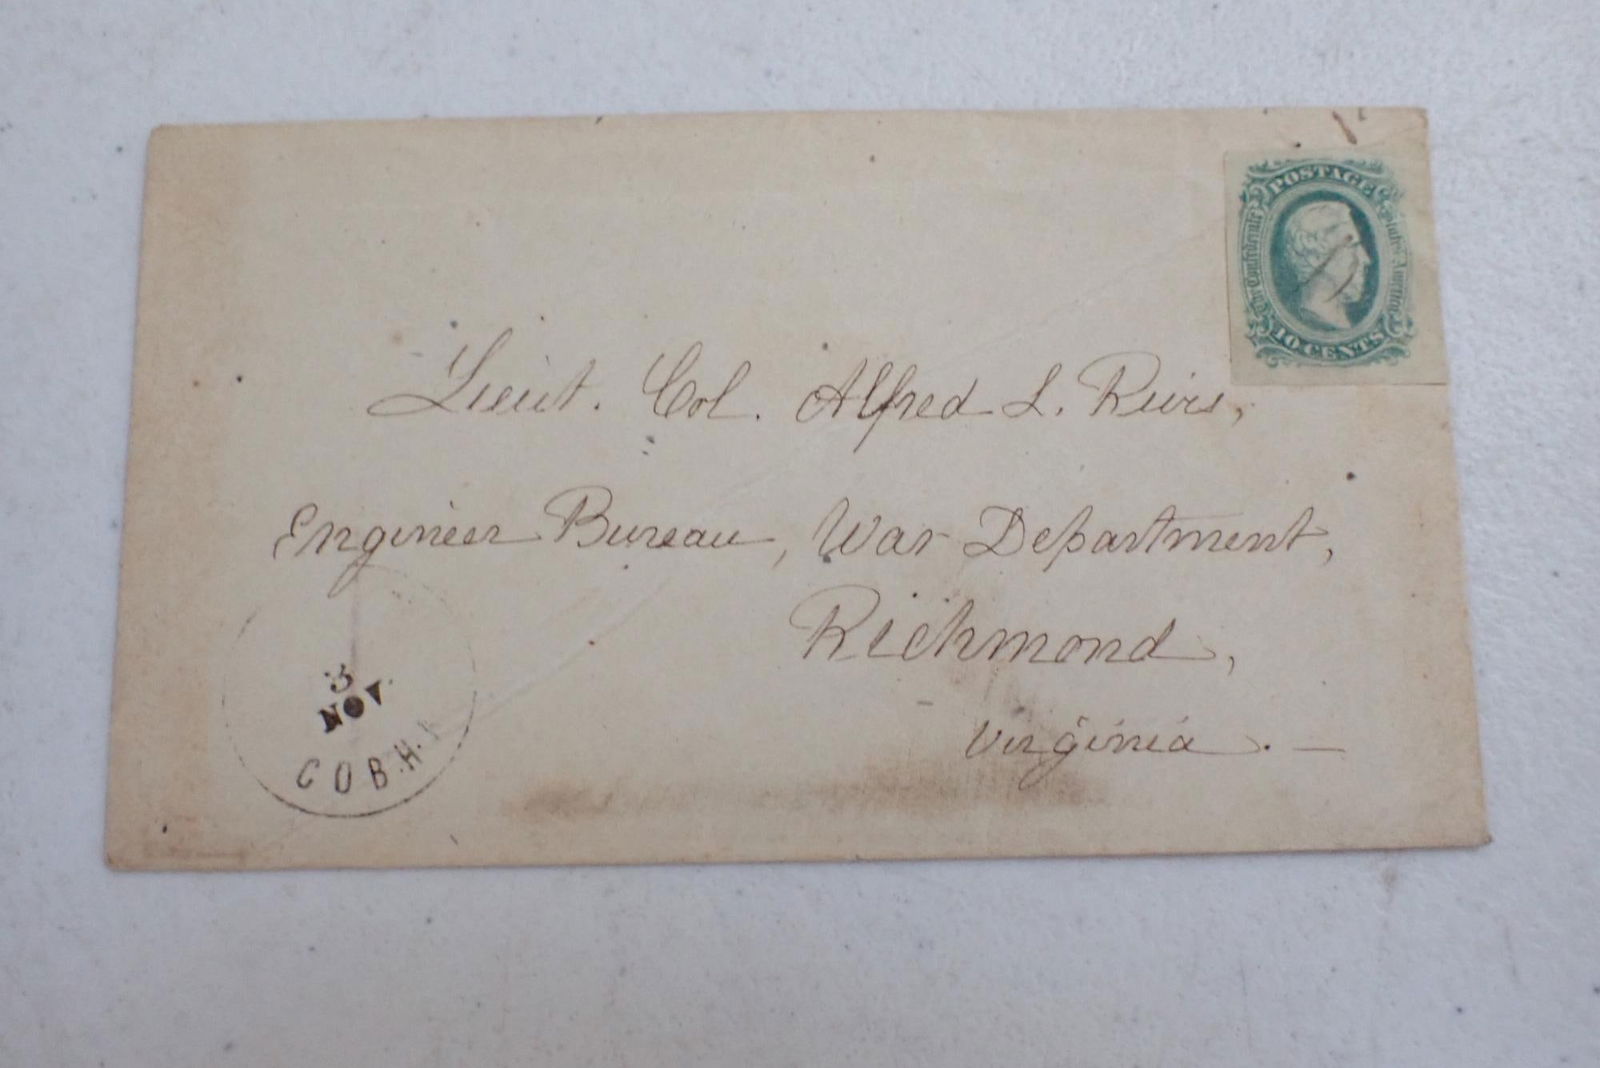 POSTAGE
The Confederate States America
10 CENTS
Lieut. Col. Alfred L. Rives,
Engineer Bureau, War Department,
Richmond,
Virginia. —
3
NOV
COBH.